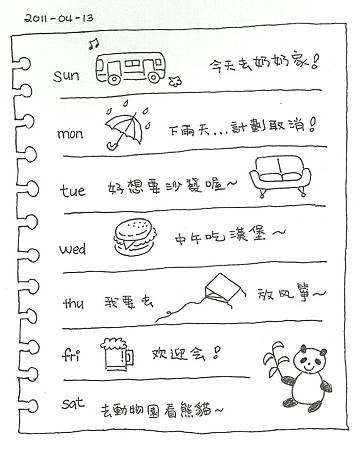 2011-04-13
sun 今天去奶奶家!
mon 下雨天...計劃取消!
tue 好想要沙發喔~
wed 中午吃漢堡~
thu 我要去 放风箏~
fri 欢迎会!
sat 去動物園看熊貓~